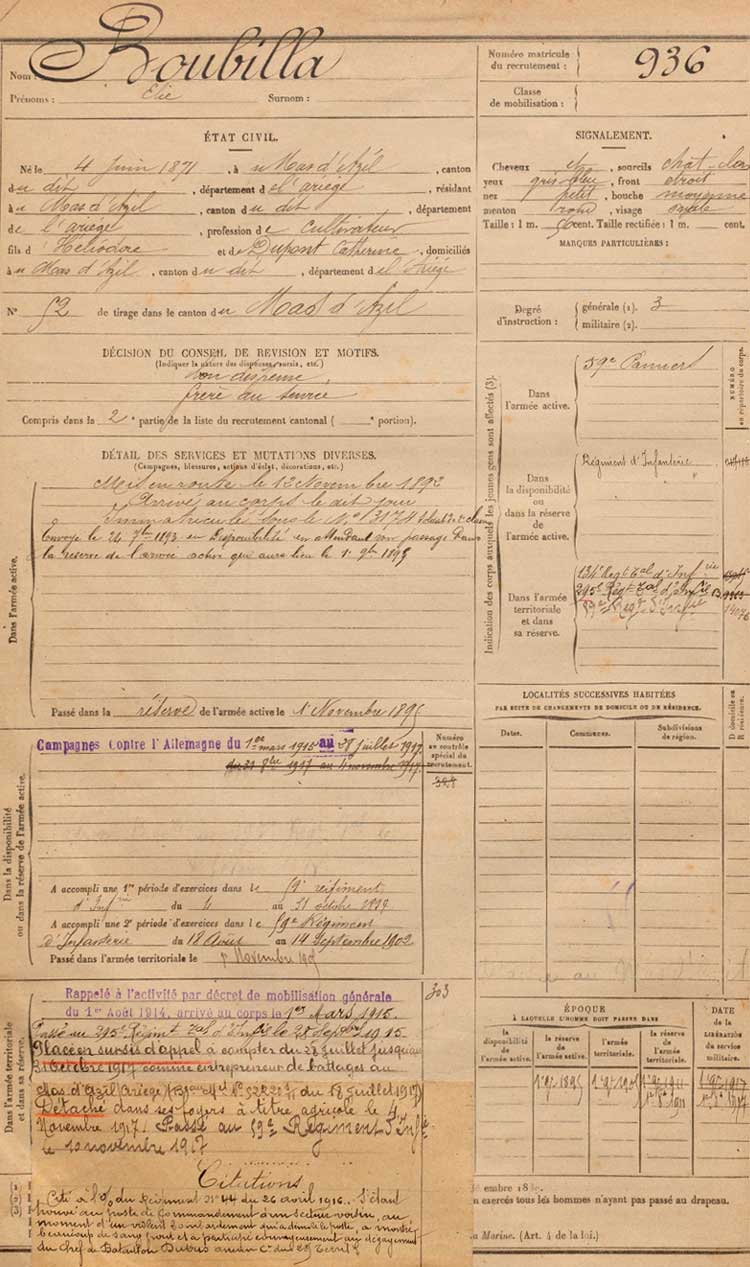 Nom : Roubilla
Prénoms : Elie Surnom :
Numéro matricule
du recrutement : 936
Classe
de mobilisation :
ÉTAT CIVIL.
Né le 4 Juin 1871, à u Mas d'Azil, canton
du dit, département de l'ariège, résidant
à u Mas d'Azil, canton du dit, département
de l'ariège, profession de cultivateur
fils d' Héliodore et de Dupont Catherine, domiciliés
à u Mas d'Azil, canton du dit, département de l'Ariège
N° 52 de tirage dans le canton du Mas d'Azil
SIGNALEMENT.
Cheveux sourcils
yeux gris bleu, front étroit
nez petit, bouche moyenne
menton rond, visage ovale
Taille : 1 m. cent. Taille rectifiée : 1 m. cent.
MARQUES PARTICULIÈRES :
Degré
d'instruction :
générale (1). 3
militaire (2).
DÉCISION DU CONSEIL DE REVISION ET MOTIFS.
(Indiquer la nature des dispenses, sursis, etc.)
bon dispensé,
frère au service
Compris dans la 2e partie de la liste du recrutement cantonal ( e portion).
DÉTAIL DES SERVICES ET MUTATIONS DIVERSES.
(Campagnes, blessures, actions d'éclat, décorations, etc.)
Dans l'armée active.
Mis en route le 12 Novembre 1892
Arrivé au corps le dit jour
Immatriculé sous le N° 3174 soldat de 2e classe
Envoyé le 24 7bre 1893 en disponibilité en attendant son passage dans
la réserve de l'armée active qui aura lieu le 1er 9bre 1895
Passé dans la réserve de l'armée active le 1er Novembre 1895
Indication des corps auxquels les jeunes gens sont affectés (3).
NUMÉRO
au répertoire du corps.
Dans
l'armée active.
59e Pamiers
Dans
la disponibilité
ou dans la réserve
de l'armée active.
Régiment d'Infanterie
Dans l'armée
territoriale
et dans
sa réserve.
134e Regt tal d'Infrie
295e Régt tal d'Infrie
59e Regt d'Infrie
14076
LOCALITÉS SUCCESSIVES HABITÉES
PAR SUITE DE CHANGEMENTS DE DOMICILE OU DE RÉSIDENCE.
Dates. Communes. Subdivisions
de région.
D domicile ou
R résidence.
Dans la disponibilité
ou dans la réserve de l'armée active.
Campagnes Contre l'Allemagne du 1er mars 1915 au 28 juillet 1917
du 31 8bre 1917 au 11 novembre 1917
Numéro
au contrôle
spécial du
recrutement.
A accompli une 1re période d'exercices dans le 59e régiment
d'Infrie du 4 au 31 octobre 1899
A accompli une 2e période d'exercices dans le 59e Régiment
d'Infanterie du 18 Août au 14 Septembre 1902
Passé dans l'armée territoriale le 1er Novembre 1905
Dans l'armée territoriale
et dans sa réserve.
303
Rappelé à l'activité par décret de mobilisation générale
du 1er Août 1914, arrivé au corps le 1er Mars 1915.
Passé au 295e Régimt tal d'Infrie le 1915
Placé en sursis d'appel à compter du 28 juillet jusqu'au
31 Octobre 1917 comme entrepreneur de battages au
Mas d'Azil (Ariège) du 18 juillet 1917)
Détaché dans ses foyers à titre agricole le 4
Novembre 1917. Passé au 59e Régiment d'Infie
le 10 novembre 1917
Citations
Cité à l'o/ du Régiment N° 44 du 26 avril 1916. S'étant
trouvé au poste de Commandement d'un secteur voisin, au
moment d'un violent bombardement qui a démoli le poste, a montré
beaucoup de sang froid et a participé courageusement au dégagement
du Chef de Bataillon Dubus
ÉPOQUE
À LAQUELLE L'HOMME DOIT PASSER DANS
la
disponibilité
de l'armée
active.
la réserve
de
l'armée active.
l'armée
territoriale.
la réserve
de
l'armée
territoriale.
DATE
de la
LIBÉRATION
du service
militaire.
1er 9bre 1895 1er 9bre 1905 1er 9bre 1911 1er 9bre 1917
en exercés tous les hommes n'ayant pas passé au drapeau.
la Marine. (Art. 4 de la loi.)